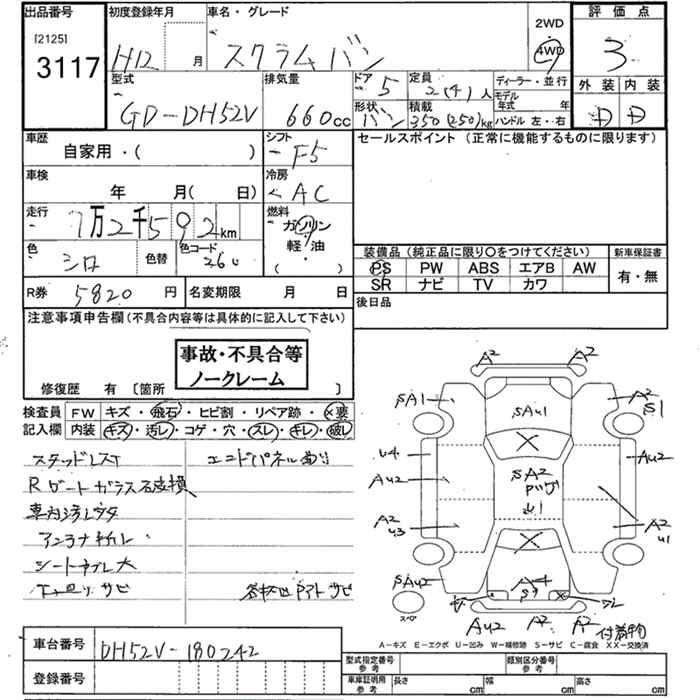 出品番号 初度登録年月 車名・グレード 2WD 評価点
[2125] H12 月 スクラムバン 4WD 3
3117 型式 排気量 ドア 5 定員 2(4)人 ディーラー・並行 外装 内装
GD-DH52V 660cc 形状 バン 積載 350(250)kg モデル年式 年 ハンドル 左・右 D D
車歴 シフト セールスポイント (正常に機能するものに限ります)
自家用・( ) F5
車検 冷房
年 月( 日) AC
走行 燃料
7万2千592km ガソリン
色 シロ 色替 色コード 26U 軽・油 装備品 (純正品に限り○をつけてください) 新車保証書
( ) PS PW ABS エアB AW 有・無
R券 5820 円 名変期限 月 日 SR ナビ TV カワ
注意事項申告欄 (不具合内容等は具体的に記入して下さい) 後日品
事故・不具合等
ノークレーム
修復歴 有 [箇所 ]
検査員 FW キズ・飛石・ヒビ割・リペア跡・×要
記入欄 内装 キズ・汚レ・コゲ・穴・スレ・キレ・破レ
スタッドレス エンドパネル曲り
Rゲートガラス石
アンテナ
シート 大
下回リサビ サビ
A2 A2
SA1 SAU1 A2 S1
U4 AU2
AU2 SA2
A2 U3 A2 U1
SAU2
スペア AU2 A2 A2 付着物
A-キズ E-エクボ U-凹み W-補修跡 S-サビ C-腐食 XX-交換済
車台番号 DH52V-180242
登録番号 型式指定番号 参考 類別区分番号 参考
車庫証明用 参考 長さ cm 幅 cm 高さ cm